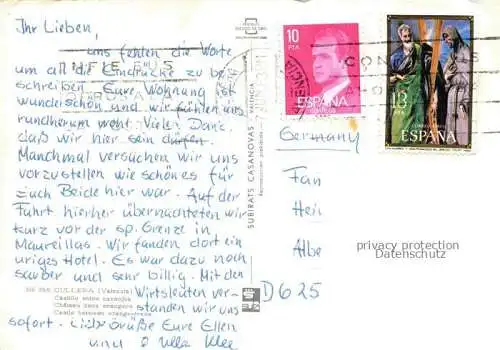 Ihr Lieben,
uns fehlen die Worte
um all die Eindrücke zu be-
schreiben. Eure Wohnung ist
wunderschön und wir fühlen uns
rundherum wohl. Vielen Dank
daß wir hier sein dürfen.
Manchmal versuchen wir uns
vorzustellen wie schön es für
Euch Beide hier war. Auf der
Fahrt hierher übernachteten wir
kurz vor der sp. Grenze in
Maureillas. Wir fanden dort ein
uriges Hotel. Es war dazu noch
sauber und sehr billig. Mit den
Wirtsleuten ver-
standen wir uns
sofort. Liebe Grüße Eure Ellen
und
CULLERA (Valencia)
Castillo entre naranjos
Château dans orangers
Castle between orangetrees
SUBIRATS CASANOVAS - VALENCIA
10
PTA
ESPAÑA
13
PTA
ESPAÑA
Germany
Fan
Hei
Albe
D 625
privacy protection
Datenschutz